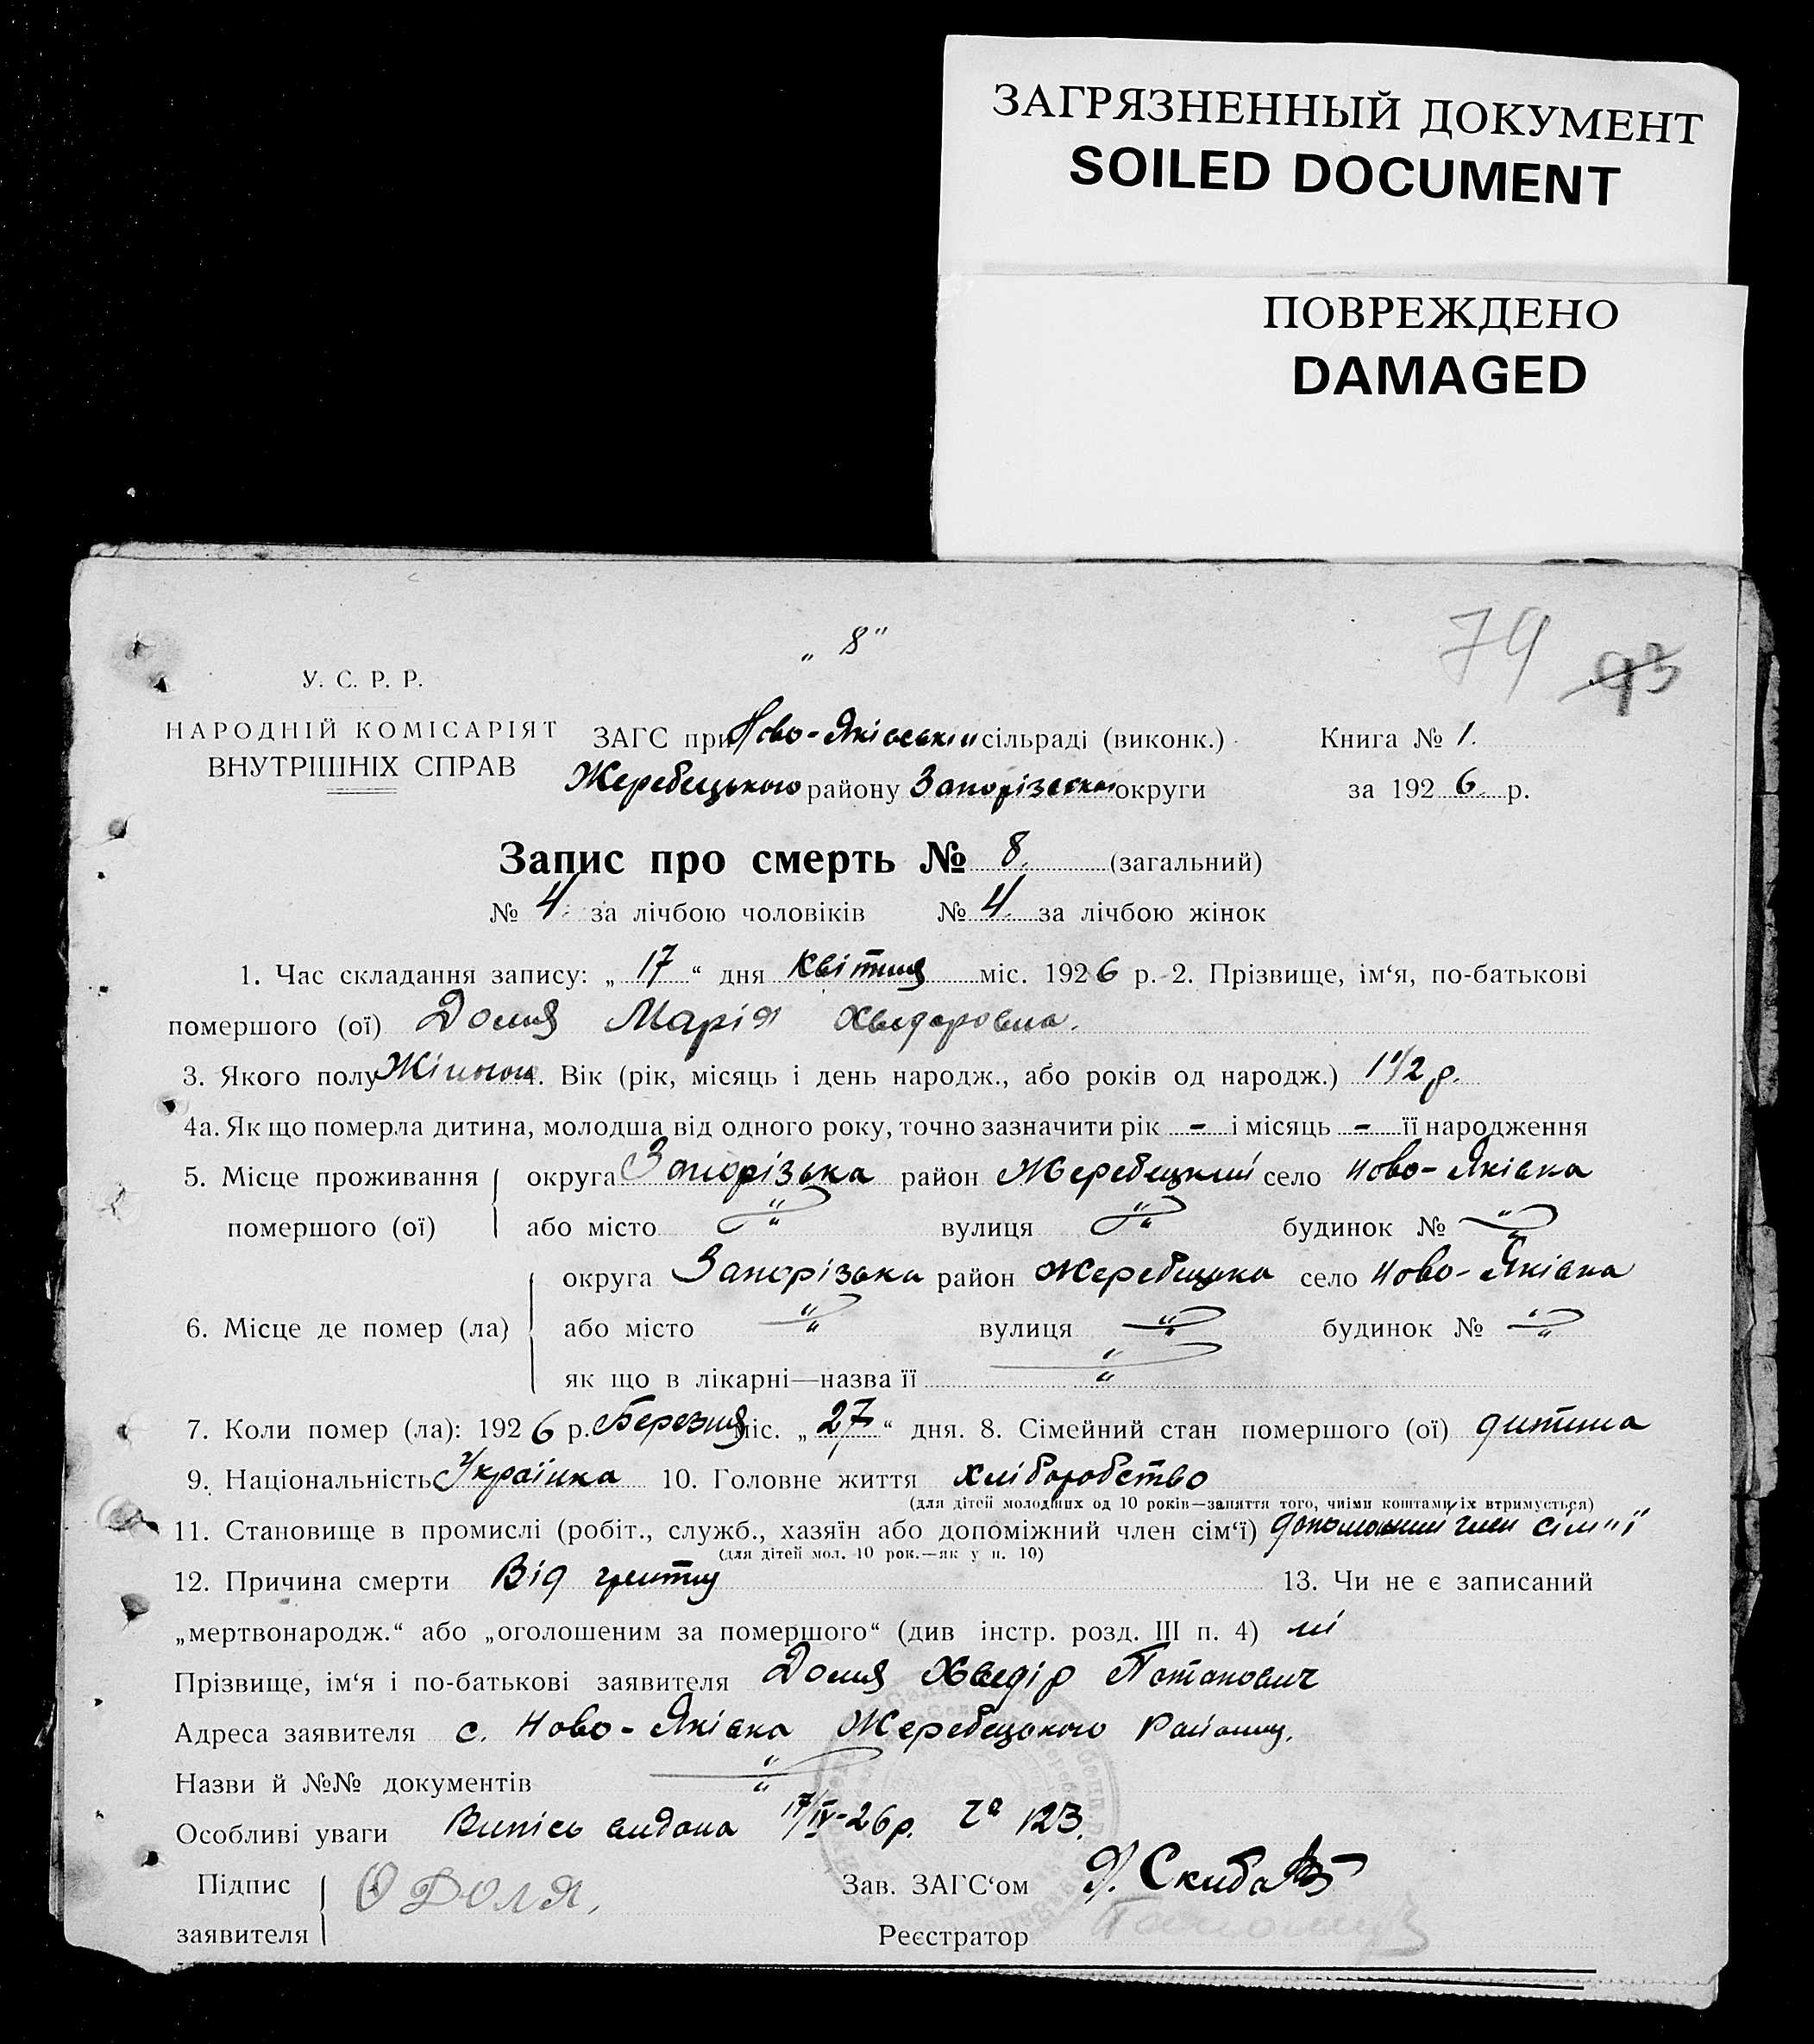 ЗАГРЯЗНЕННЫЙ ДОКУМЕНТ
SOILED DOCUMENT
ПОВРЕЖДЕНО
DAMAGED
„8"
79 93
У. С. Р. Р.
НАРОДНІЙ КОМІСАРІЯТ
ВНУТРІШНІХ СПРАВ
ЗАГС при Ново-Яківській сільраді (виконк.)
Книга № 1.
Жеребецького району Запорізської округи
за 1926 р.
Запис про смерть № 8. (загальний)
№ 4. за лічбою чоловіків № 4. за лічбою жінок
1. Час складання запису: „17“ дня Квітня міс. 1926 р. 2. Прізвище, ім‘я, по-батькові
помершого (ої) Доля Марія Хведоровна.
3. Якого полу Жіночої 4. Вік (рік, місяць і день народж., або років од народж.) 1 1/2 р.
4а. Як що померла дитина, молодша від одного року, точно зазначити рік - і місяць - її народження
5. Місце проживання округа Запорізька район Жеребецький село Ново-Яківка
помершого (ої) або місто " вулиця " будинок № "
округа Запорізька район Жеребецька село Ново-Яківка
6. Місце де помер (ла) або місто " вулиця " будинок № "
як що в лікарні—назва її "
7. Коли помер (ла): 1926 р. Березня міс. „27“ дня. 8. Сімейний стан помершого (ої) дитина
9. Національність Українка 10. Головне життя хліборобство
(для дітей молодших од 10 років—заняття того, чиїми коштами їх втримується)
11. Становище в промислі (робіт., служб., хазяїн або допоміжний член сім‘ї) допоможний член сім"ї
(для дітей мол. 10 рок.—як у п. 10)
12. Причина смерти Від грипу 13. Чи не є записаний
„мертвонародж.“ або „оголошеним за помершого“ (див інстр. розд. III п. 4) ні
Прізвище, ім‘я і по-батькові заявителя Доля Хведір Потапович
Адреса заявителя с. Ново-Яківка Жеребецького Району.
Назви й №№ документів "
Особливі уваги Випісь видана 17/IV-26р. за 123.
Підпис
заявителя
Ф Доля,
Зав. ЗАГС‘ом Скиба
Реєстратор